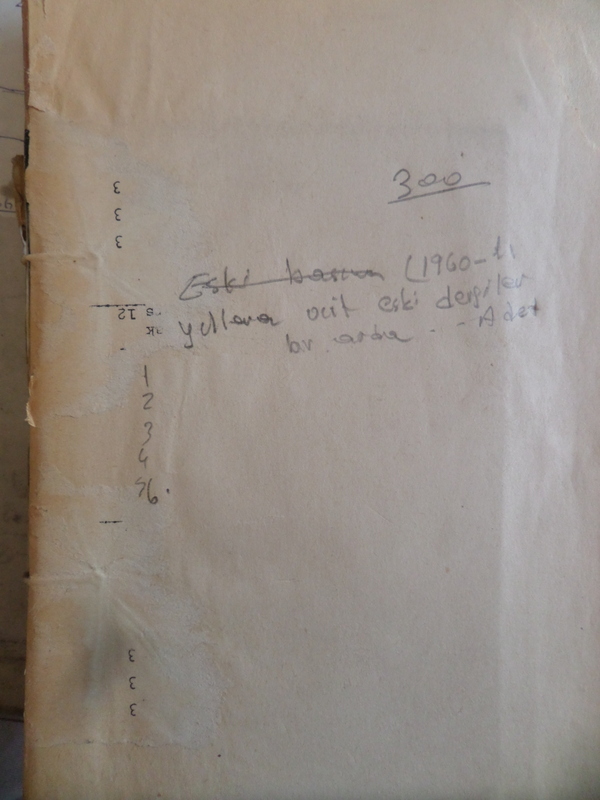 300
Eski basım (1960-lı
yıllara ait eski dergiler
bir arada - - Adet
3
3
3
s 12
1
2
3
4
56.
3
3
3